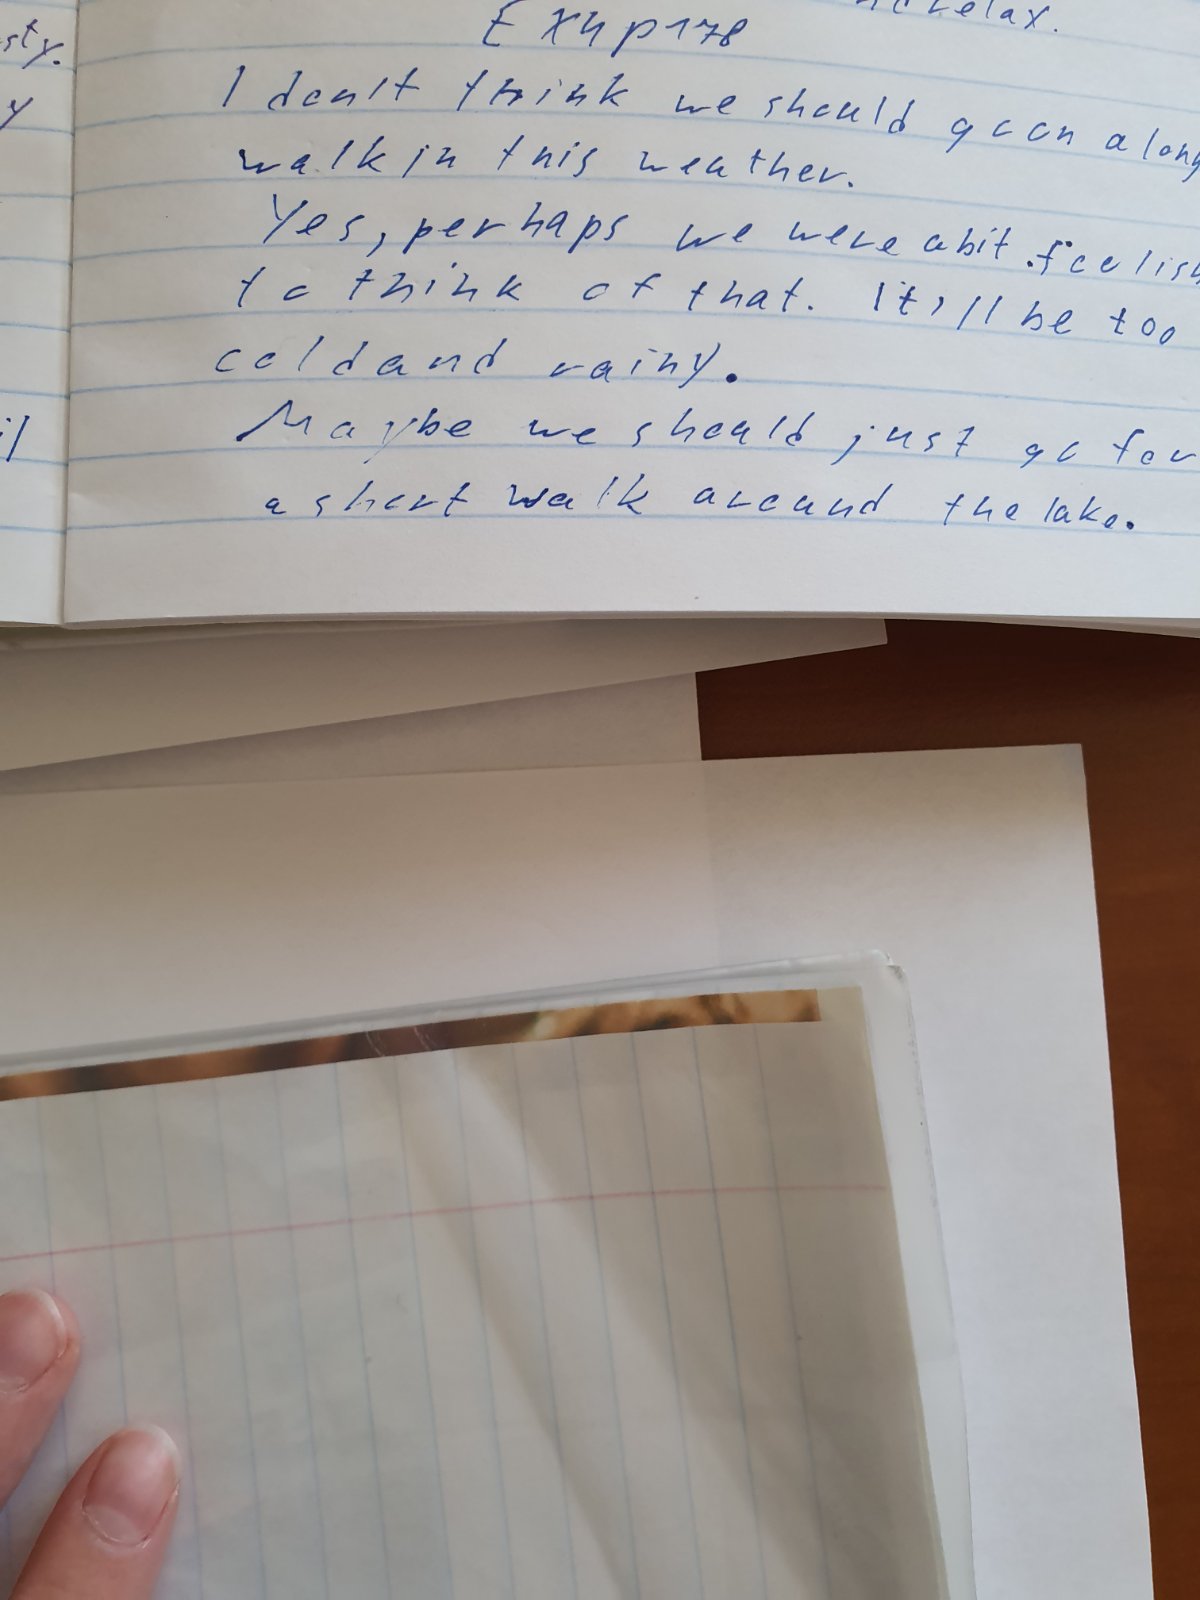 relax.
sty.
y
Ex4 p178
I don't think we should go on a long
walk in this weather.
Yes, perhaps we were a bit foolish
to think of that. It'll be too
cold and rainy.
Maybe we should just go for
a short walk around the lake.